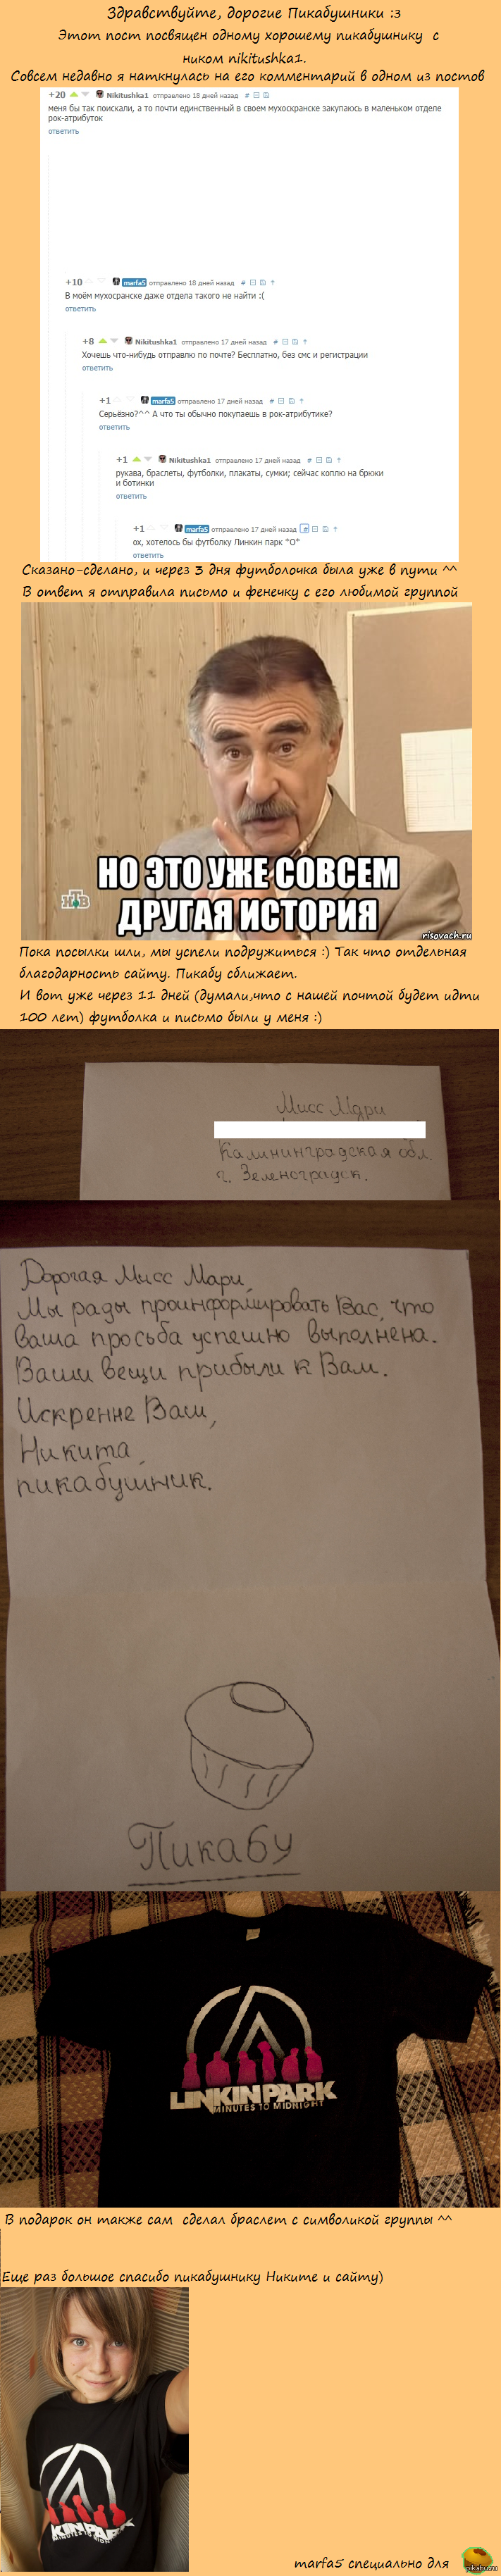 Здравствуйте, дорогие Пикабушники :3
Этот пост посвящен одному хорошему пикабушнику с
ником nikitushka1.
Совсем недавно я наткнулась на его комментарий в одном из постов
+20 Nikitushka1 отправлено 18 дней назад #
меня бы так поискали, а то почти единственный в своем мухосранске закупаюсь в маленьком отделе
рок-атрибуток
ответить
+10 marfa5 отправлено 18 дней назад # ↑
В моём мухосранске даже отдела такого не найти :(
ответить
+8 Nikitushka1 отправлено 17 дней назад # ↑
Хочешь что-нибудь отправлю по почте? Бесплатно, без смс и регистрации
ответить
+1 marfa5 отправлено 17 дней назад # ↑
Серьёзно?^^ А что ты обычно покупаешь в рок-атрибутике?
ответить
+1 Nikitushka1 отправлено 17 дней назад # ↑
рукава, браслеты, футболки, плакаты, сумки; сейчас коплю на брюки
и ботинки
ответить
+1 marfa5 отправлено 17 дней назад # ↑
ох, хотелось бы футболку Линкин парк "О"
ответить
Сказано-сделано, и через 3 дня футболочка была уже в пути ^^
В ответ я отправила письмо и фенечку с его любимой группой
НО ЭТО УЖЕ СОВСЕМ
ДРУГАЯ ИСТОРИЯ
НТВ
risovach.ru
Пока посылки шли, мы успели подружиться :) Так что отдельная
благодарность сайту. Пикабу сближает.
И вот уже через 11 дней (думали,что с нашей почтой будет идти
100 лет) футболка и письмо были у меня :)
Мисс Мари
Калининградская обл.
г. Зеленоградск.
Дорогая Мисс Мари,
Мы рады проинформировать Вас, что
ваша просьба успешно выполнена.
Ваши вещи прибыли к Вам.
Искренне Ваш,
Никита,
пикабушник.
Пикабу
LINKIN PARK
MINUTES TO MIDNIGHT
В подарок он также сам сделал браслет с символикой группы ^^
Еще раз большое спасибо пикабушнику Никите и сайту)
KINPARK
MINUTES TO
marfa5 специально для
pikabu.ru